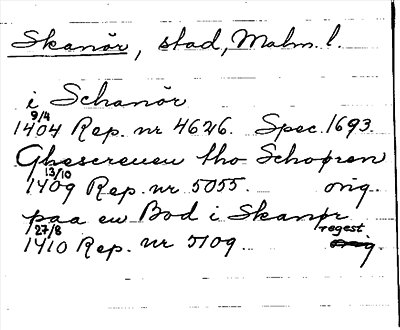 Skanör, stad, Malm. l.
i Schanör
9/4
1404 Rep. nr 4626. Spec. 1693.
Ghescreuen tho Schonren
13/10
1409 Rep. nr 5055. orig.
paa en Bod i Skanør
27/8 regest
1410 Rep. nr 5109. orig